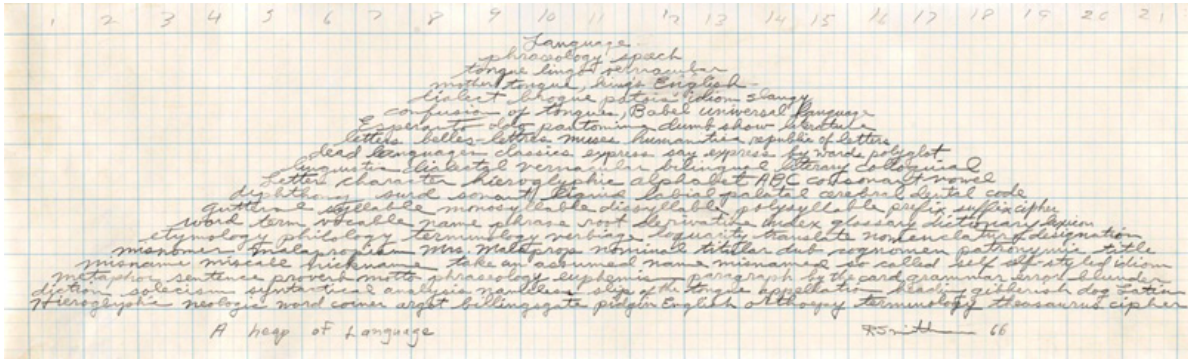 1 2 3 4 5 6 7 8 9 10 11 12 13 14 15 16 17 18 19 20 21
Language
phraseology speech
tongue lingo vernacular
mother tongue, king's English
dialect brogue patois idiom slangy
confusion of tongues, Babel universal language
Esperanto dog pantomime dumb show literature
letters belles-lettres muses humanities republic of letters
dead languages classics express say express by words polyglot
linguistic dialectal vernacular bilingual literary colloquial
letter character hieroglyphic alphabet ABC consonant vowel
diphthong surd sonant liquid labial palatal cerebral dental code
guttural syllable monosyllable dissyllable polysyllable prefix suffix cipher
word term vocable name phrase root derivative index glossary dictionary lexicon
etymology philology terminology verbiage loquacity translate nomenclature designation
misnomer malapropism Mrs. Malaprop nominal titular dub cognomen patronymic title
misname miscall nickname take an assumed name misnamed so called self self-styled idiom
metaphor sentence proverb motto phraseology euphemism paragraph by the card grammar error blunder
diction solecism syntactical analysis nameless slip of the tongue appellation heading gibberish dog Latin
Hieroglyphic neologic word coiner argot billingsgate pidgin English orthoepy terminology theasaurus cipher
A heap of Language
RSmithson 66